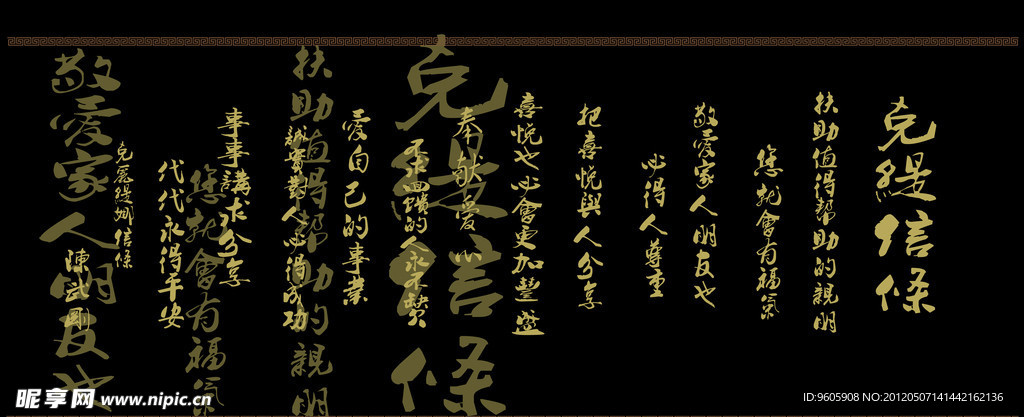 克緹信條
扶助值得幫助的親朋
您就會有福氣
敬愛家人朋友也
必得人尊重
把喜悅與人分享
喜悅也必會更加豐盛
奉獻愛心
不求回饋的人永不缺欠
愛自己的事業
誠實對人必得成功
事事講求分享
代代永得平安
克麗緹娜信條
陳武剛
克緹信條
扶助值得幫助的親朋
您就會有福氣
敬愛家人朋友也
昵享网 www.nipic.cn
ID:9605908 NO:20120507141442162136